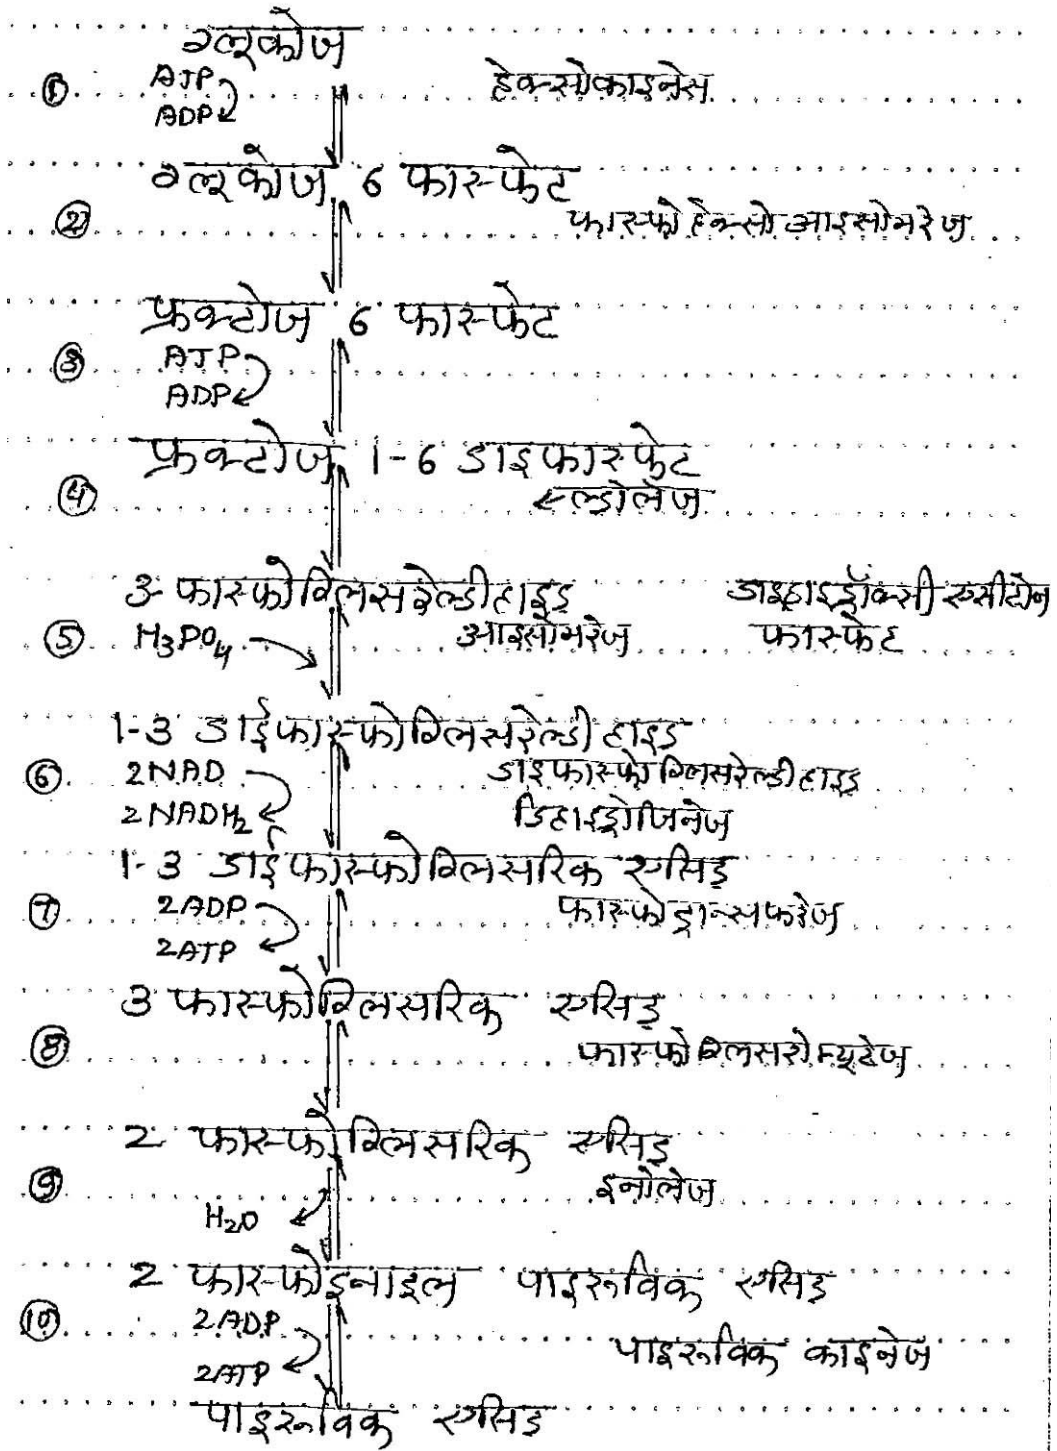 ग्लूकोज
① ATP हेक्सोकाइनेस
ADP
ग्लूकोज 6 फास्फेट
② फास्फोहेक्सोआइसोमरेज
फ्रक्टोज 6 फास्फेट
③ ATP
ADP
फ्रक्टोज 1-6 डाइफास्फेट
④ एल्डोलेज
3-फास्फोग्लिसरेल्डीहाइड डाइहाइड्रॉक्सी एसीटोन
⑤ H₃PO₄ आइसोमरेज फास्फेट
1-3 डाईफास्फोग्लिसरेल्डीहाइड
⑥ 2NAD डाइफास्फोग्लिसरेल्डीहाइड
2NADH₂ डिहाइड्रोजिनेज
1-3 डाईफास्फोग्लिसरिक एसिड
⑦ 2ADP फास्फोट्रान्सफरेज
2ATP
3 फास्फोग्लिसरिक एसिड
⑧ फास्फोग्लिसरोम्यूटेज
2 फास्फोग्लिसरिक एसिड
⑨ इनोलेज
H₂O
2 फास्फोइनाइल पाइरूविक एसिड
⑩ 2ADP
पाइरूविक काइनेज
2ATP
पाइरूविक एसिड